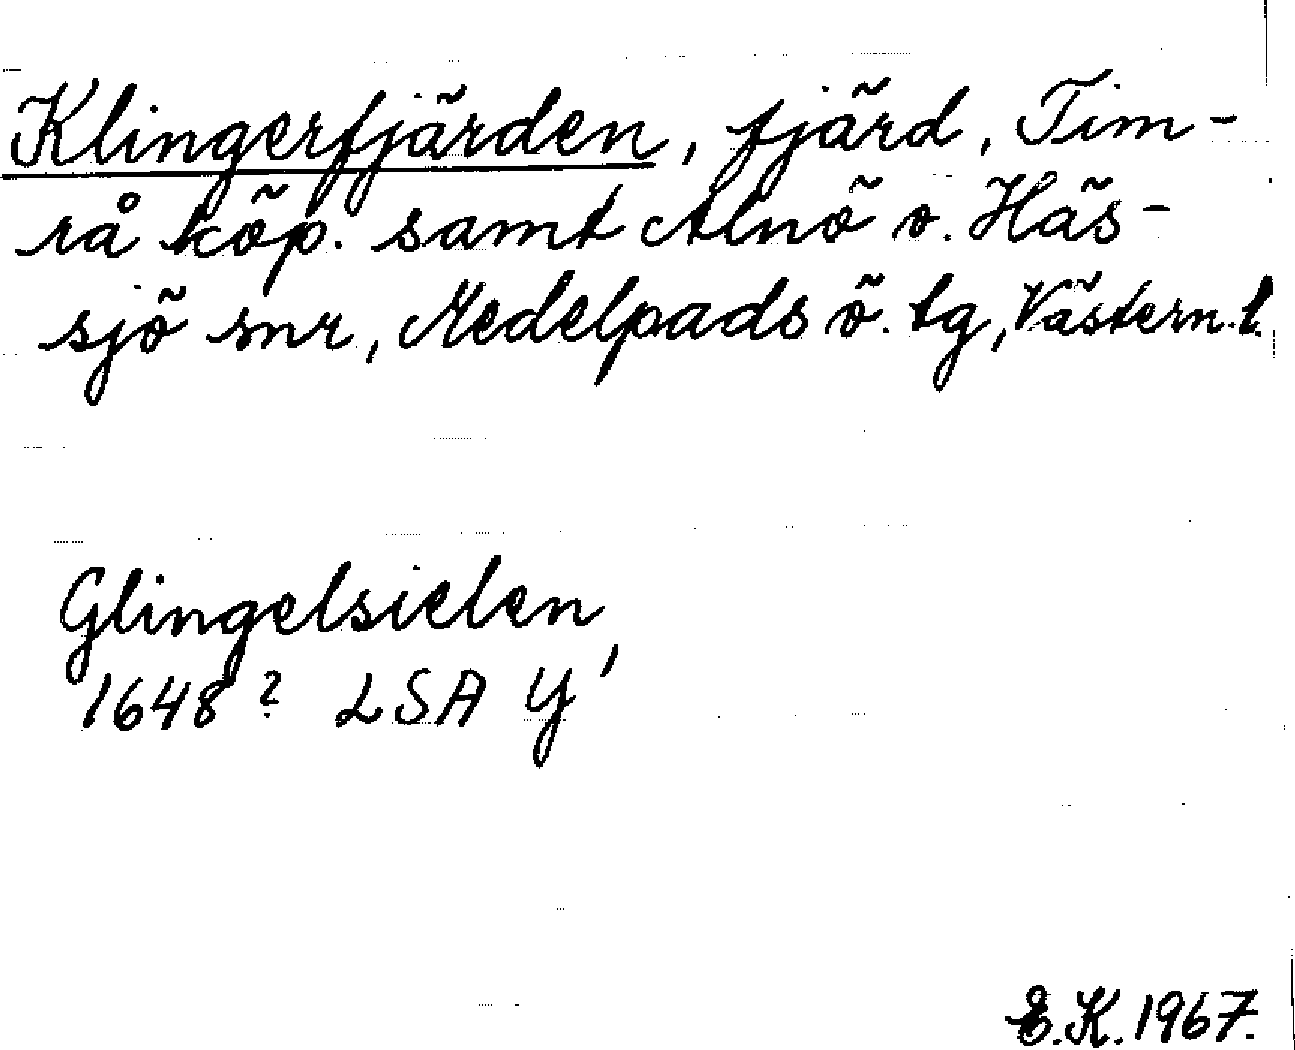 Klingerfjärden, fjärd, Tim-
rå köp. samt Alnö o. Häs-
sjö snr, Medelpads ö. tg, Västern. l.
Glingelsielen,
1648? LSA Y'
E.K. 1967.